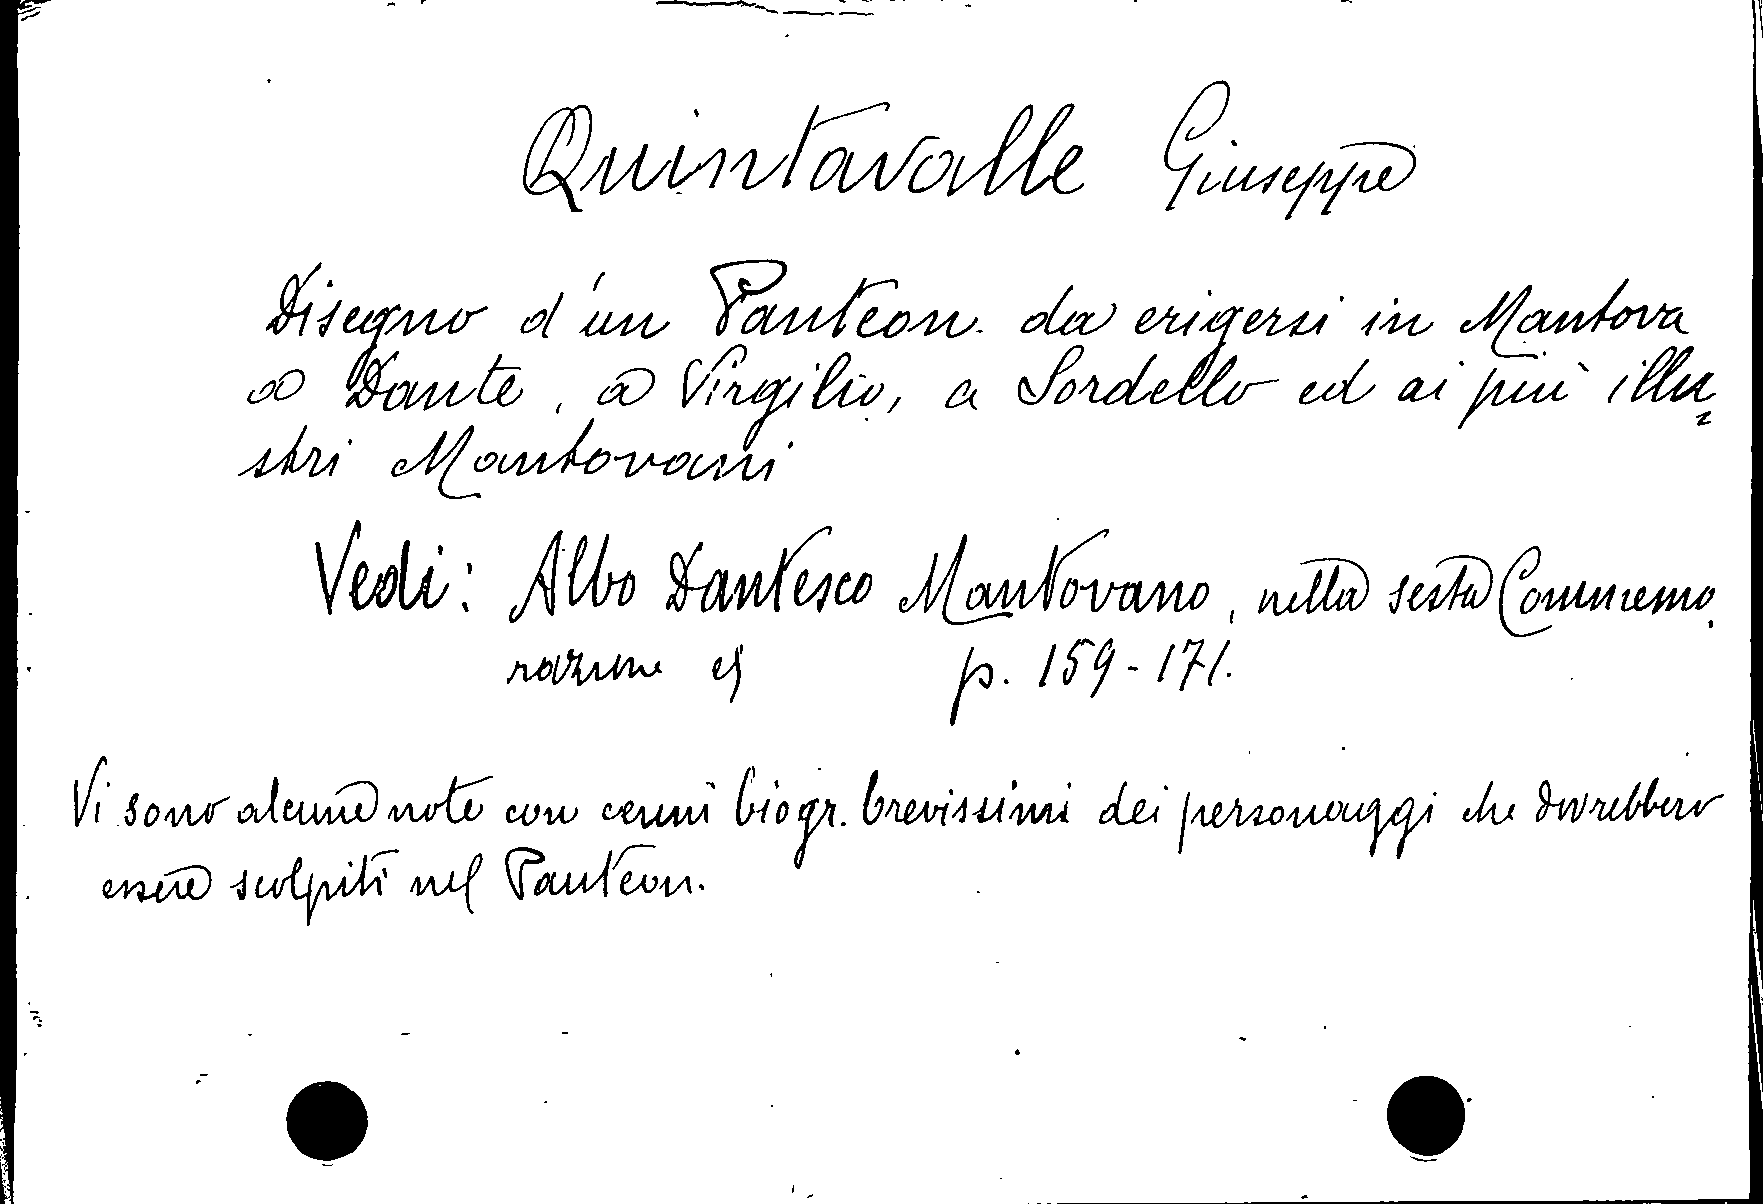 Quintavalle Giuseppe
Disegno d'un Panteon da erigersi in Mantova
a Dante, a Virgilio, a Sordello ed ai più illu=
stri Mantovani
Vedi: Albo Dantesco Mantovano, nella sesta Commemo.
razione p. 159-171.
Vi sono alcune note con cenni biogr. brevissimi dei personaggi che dovrebbero
essere scolpiti nel Panteon.